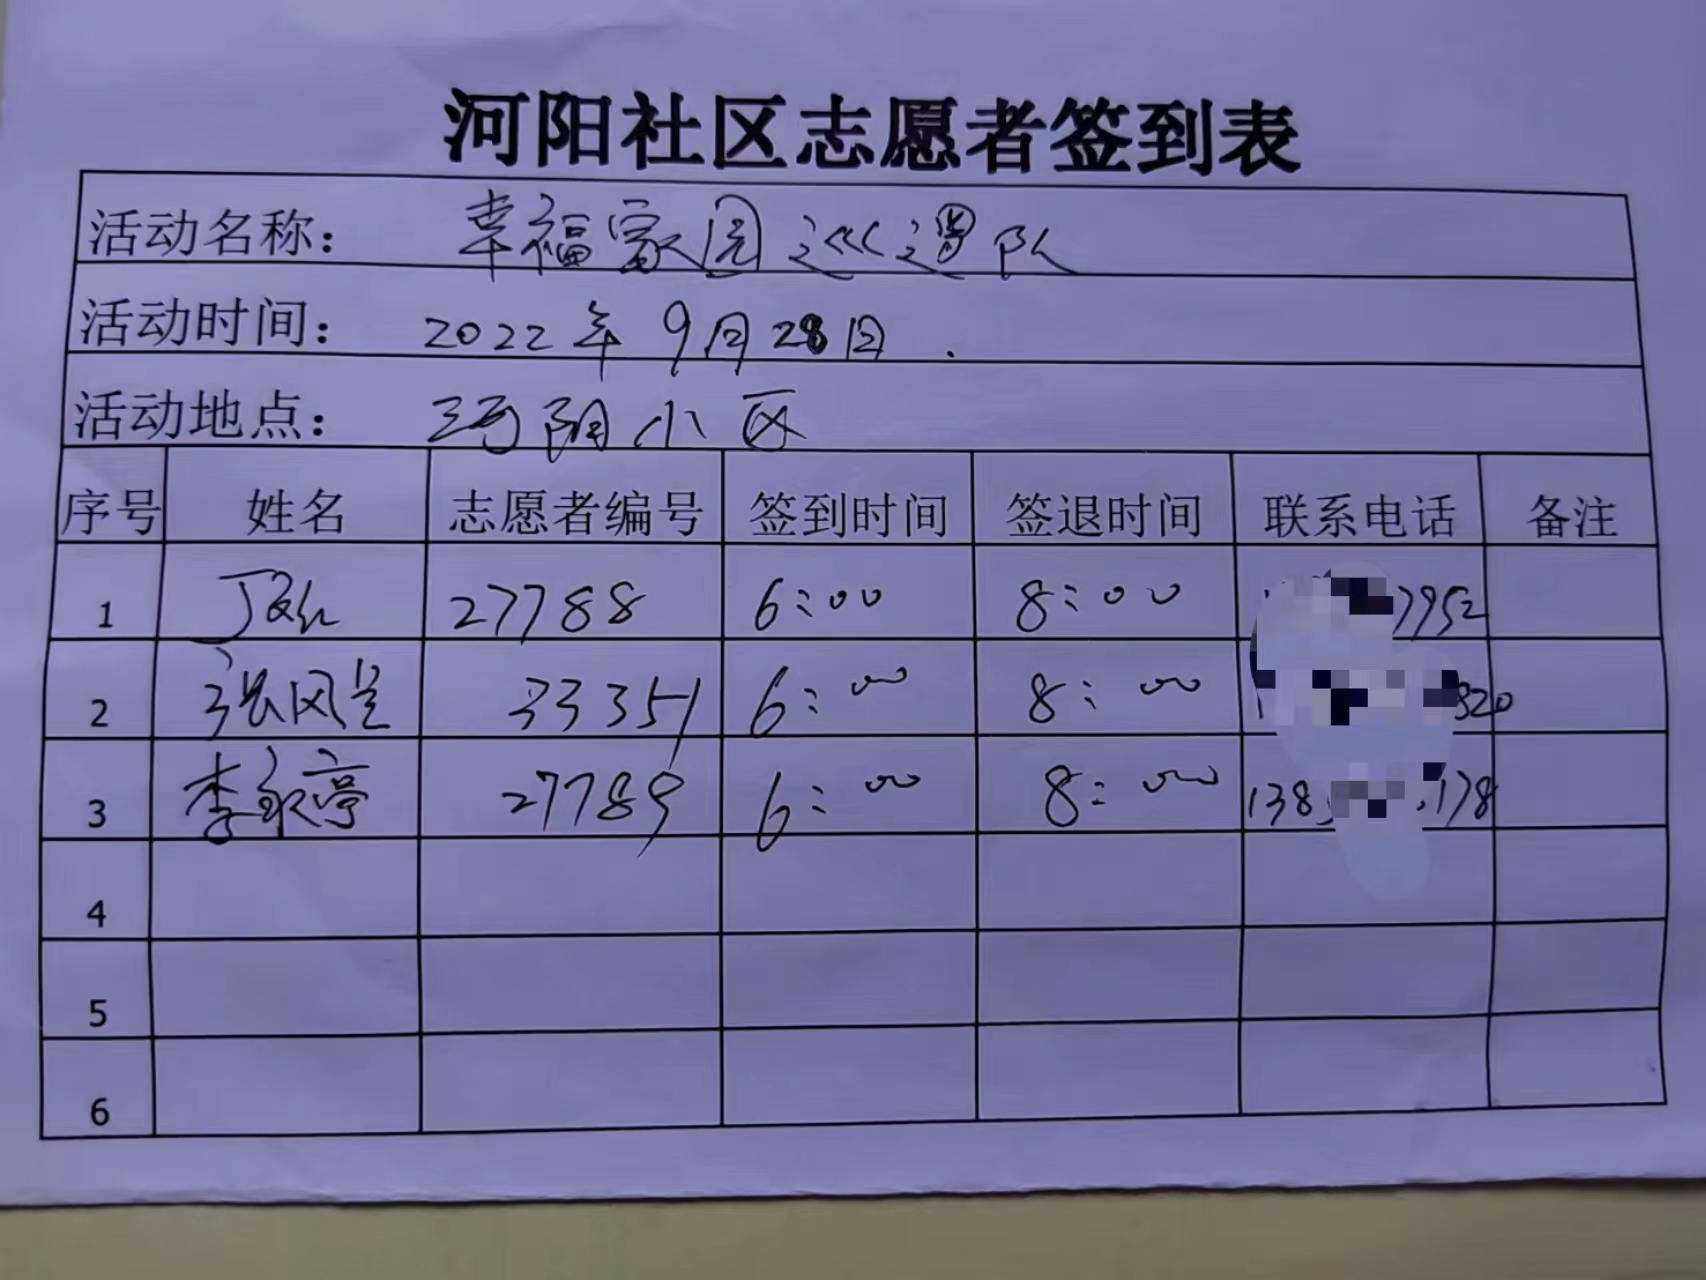 河阳社区志愿者签到表
活动名称： 幸福家园巡逻队
活动时间： 2022年9月28日.
活动地点： 河阳小区
序号 姓名 志愿者编号 签到时间 签退时间 联系电话 备注
1 丁 27788 6:00 8:00 7952
2 张风兰 33351 6:00 8:00 820
3 李永亭 27789 6:00 8:00 138 178
4
5
6